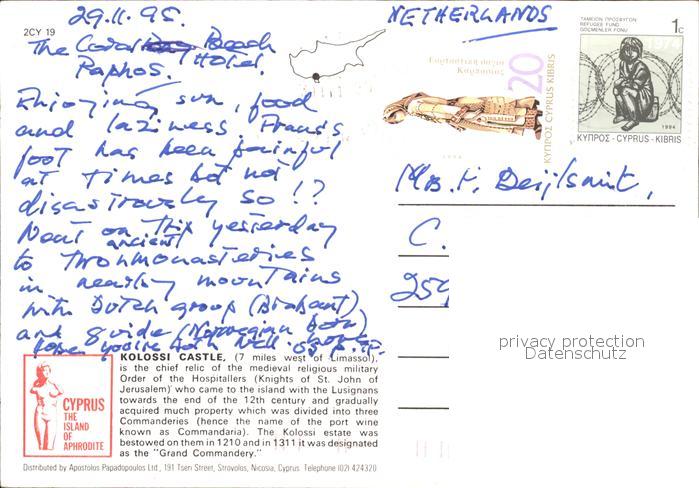 29.11.95.
2CY 19
The Coral Beach
Hotel.
Paphos.
Enjoying sun, food
and laziness. Francis
foot has been painful
at times but not
disastrously so !?
Went on trip yesterday
to two ancient monasteries
in nearby mountains
with Dutch group (Brabant)
and guide (Norwegian born)
Hope you're both well. love
KOLOSSI CASTLE, (7 miles west of Limassol),
is the chief relic of the medieval religious military
Order of the Hospitallers (Knights of St. John of
Jerusalem) who came to the island with the Lusignans
towards the end of the 12th century and gradually
acquired much property which was divided into three
Commanderies (hence the name of the port wine
known as Commandaria). The Kolossi estate was
bestowed on them in 1210 and in 1311 it was designated
as the "Grand Commandery."
CYPRUS
THE
ISLAND
OF
APHRODITE
Distributed by Apostolos Papadopoulos Ltd., 191 Tseri Street, Strovolos, Nicosia, Cyprus. Telephone (02) 424320
NETHERLANDS
20
ΚΥΠΡΟΣ CYPRUS KIBRIS
1994
ΤΑΜΕΙΟΝ ΠΡΟΣΦΥΓΩΝ
REFUGEE FUND
GÖÇMENLER FONU
1c
1974
1994
ΚΥΠΡΟΣ-CYPRUS-KIBRIS
C.
259
privacy protection
Datenschutz